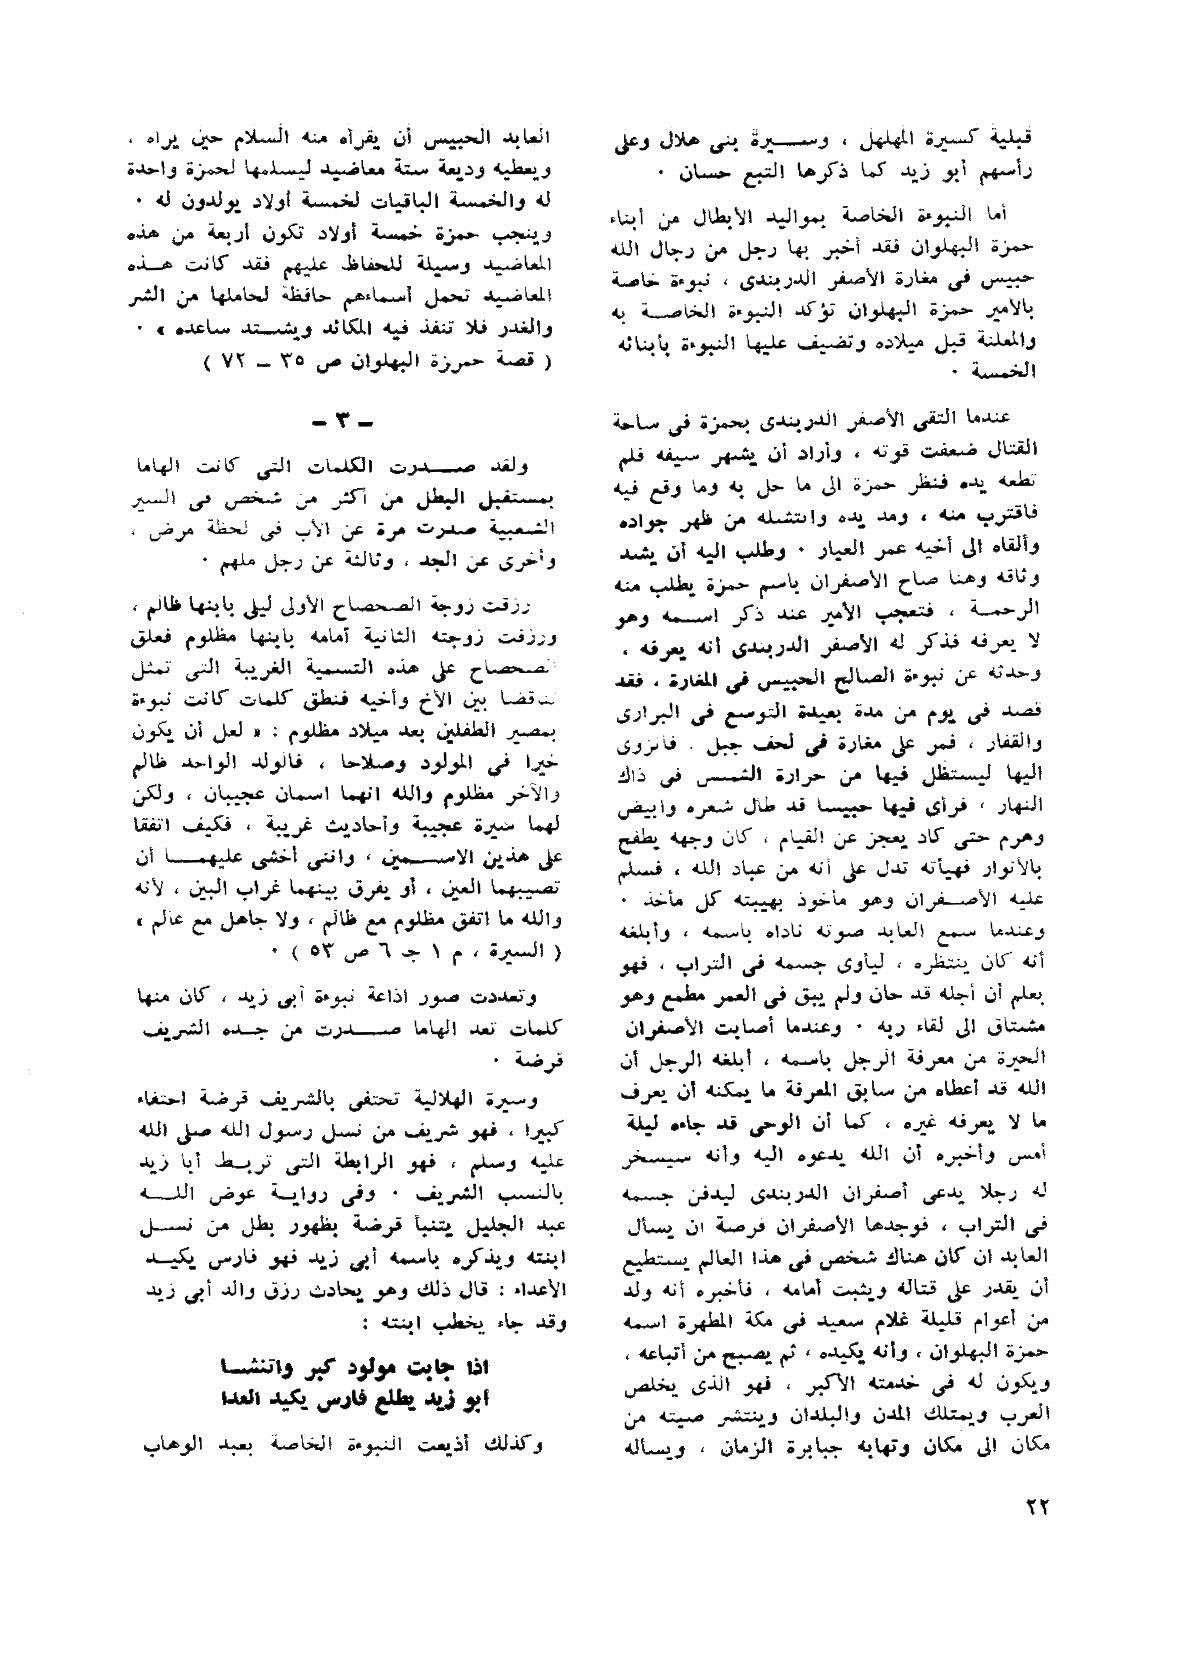 قبلية كسيرة المهلهل ، وسيرة بنى هلال وعلى
رأسهم أبو زيد كما ذكرها التبع حسان ٠
أما النبوءة الخاصة بمواليد الأبطال من أبناء
حمزة البهلوان فقد أخبر بها رجل من رجال الله
حبيس فى مغارة الأصفر الدربندى ، نبوءة خاصة
بالأمير حمزة البهلوان تؤكد النبوءة الخاصة به
والمعلنة قبل ميلاده وتضيف عليها النبوءة بأبنائه
الخمسة ٠
عندما التقى الأصفر الدربندى بحمزة فى ساحة
القتال ضعفت قوته ، وأراد أن يشهر سيفه فلم
تطعه يده فنظر حمزة الى ما حل به وما وقع فيه
فاقترب منه ، ومد يده وانتشله من ظهر جواده
وألقاه الى أخيه عمر العيار ٠ وطلب اليه أن يشد
وثاقه وهنا صاح الأصفران باسم حمزة يطلب منه
الرحمة ، فتعجب الأمير عند ذكر اسمه وهو
لا يعرفه فذكر له الأصفر الدربندى أنه يعرفه ،
وحدثه عن نبوءة الصالح الحبيس في المغارة ، فقد
قصد فى يوم من مدة بعيدة التوسع فى البرارى
والقفار ، فمر على مغارة فى لحف جبل . فانزوى
اليها ليستظل فيها من حرارة الشمس فى ذاك
النهار ، فرأى فيها حبيسا قد طال شعره وابيض
وهرم حتى كاد يعجز عن القيام ، كان وجهه يطفح
بالأنوار فهيأته تدل على أنه من عباد الله ، فسلم
عليه الأصفران وهو مأخوذ بهيبته كل مأخذ ٠
وعندما سمع العابد صوته ناداه باسمه ، وأبلغه
أنه كان ينتظره ، ليأوى جسمه فى التراب ، فهو
يعلم أن أجله قد حان ولم يبق فى العمر مطمع وهو
مشتاق الى لقاء ربه ٠ وعندما أصابت الأصفران
الحيرة من معرفة الرجل باسمه ، أبلغه الرجل أن
الله قد أعطاه من سابق المعرفة ما يمكنه أن يعرف
ما لا يعرفه غيره ، كما أن الوحى قد جاءه ليلة
أمس وأخبره أن الله يدعوه اليه وأنه سيسخر
له رجلا يدعى أصفران الدربندى ليدفن جسمه
فى التراب ، فوجدها الأصفران فرصة ان يسأل
العابد ان كان هناك شخص فى هذا العالم يستطيع
أن يقدر على قتاله ويثبت أمامه ، فأخبره أنه ولد
من أعوام قليلة غلام سعيد فى مكة المطهرة اسمه
حمزة البهلوان ، وأنه يكيده ، ثم يصبح من أتباعه ،
ويكون له فى خدمته الأكبر ، فهو الذى يخلص
العرب ويمتلك المدن والبلدان وينتشر صيته من
مكان الى مكان وتهابه جبابرة الزمان ، ويسأله
العابد الحبيس أن يقرأه منه السلام حين يراه ،
ويعطيه وديعة ستة معاضيد ليسلمها لحمزة واحدة
له والخمسة الباقيات لخمسة أولاد يولدون له ٠
وينجب حمزة خمسة أولاد تكون أربعة من هذه
المعاضيد وسيلة للحفاظ عليهم فقد كانت هذه
المعاضيد تحمل أسماءهم حافظة لحاملها من الشر
والغدر فلا تنفذ فيه المكائد ويشتد ساعده » ٠
( قصة حمرزة البهلوان ص ٣٥ – ٧٢ )
– ٣ –
ولقد صدرت الكلمات التى كانت الهاما
بمستقبل البطل من أكثر من شخص فى السير
الشعبية صدرت مرة عن الأب فى لحظة مرض ،
وأخرى عن الجد ، وثالثة عن رجل ملهم ٠
رزقت زوجة الصحصاح الأولى ليلى بابنها ظالم ،
ورزقت زوجته الثانية أمامه بابنها مظلوم فعلق
الصحصاح على هذه التسمية الغريبة التى تمثل
تناقضا بين الأخ وأخيه فنطق كلمات كانت نبوءة
بمصير الطفلين بعد ميلاد مظلوم : « لعل أن يكون
خيرا فى المولود وصلاحا ، فالولد الواحد ظالم
والآخر مظلوم والله انهما اسمان عجيبان ، ولكن
لهما سيرة عجيبة وأحاديث غريبة ، فكيف اتفقا
على هذين الاسمين ، وانني أخشى عليهما أن
تصيبهما العين ، أو يفرق بينهما غراب البين ، لأنه
والله ما اتفق مظلوم مع ظالم ، ولا جاهل مع عالم »
( السيرة ، م ١ جـ ٦ ص ٥٣ ) ٠
وتعددت صور اذاعة نبوءة أبى زيد ، كان منها
كلمات تعد الهاما صدرت من جده الشريف
قرضة ٠
وسيرة الهلالية تحتفى بالشريف قرضة احتفاء
كبيرا ، فهو شريف من نسل رسول الله صلى الله
عليه وسلم ، فهو الرابطة التى تربط أبا زيد
بالنسب الشريف ٠ وفى رواية عوض الله
عبد الجليل يتنبأ قرضة بظهور بطل من نسل
ابنته ويذكره باسمه أبى زيد فهو فارس يكيد
الأعداء : قال ذلك وهو يحادث رزق والد أبى زيد
وقد جاء يخطب ابنته :
اذا جابت مولود كبر واتنشا
ابو زيد يطلع فارس يكيد العدا
وكذلك أذيعت النبوءة الخاصة بعبد الوهاب
٢٢